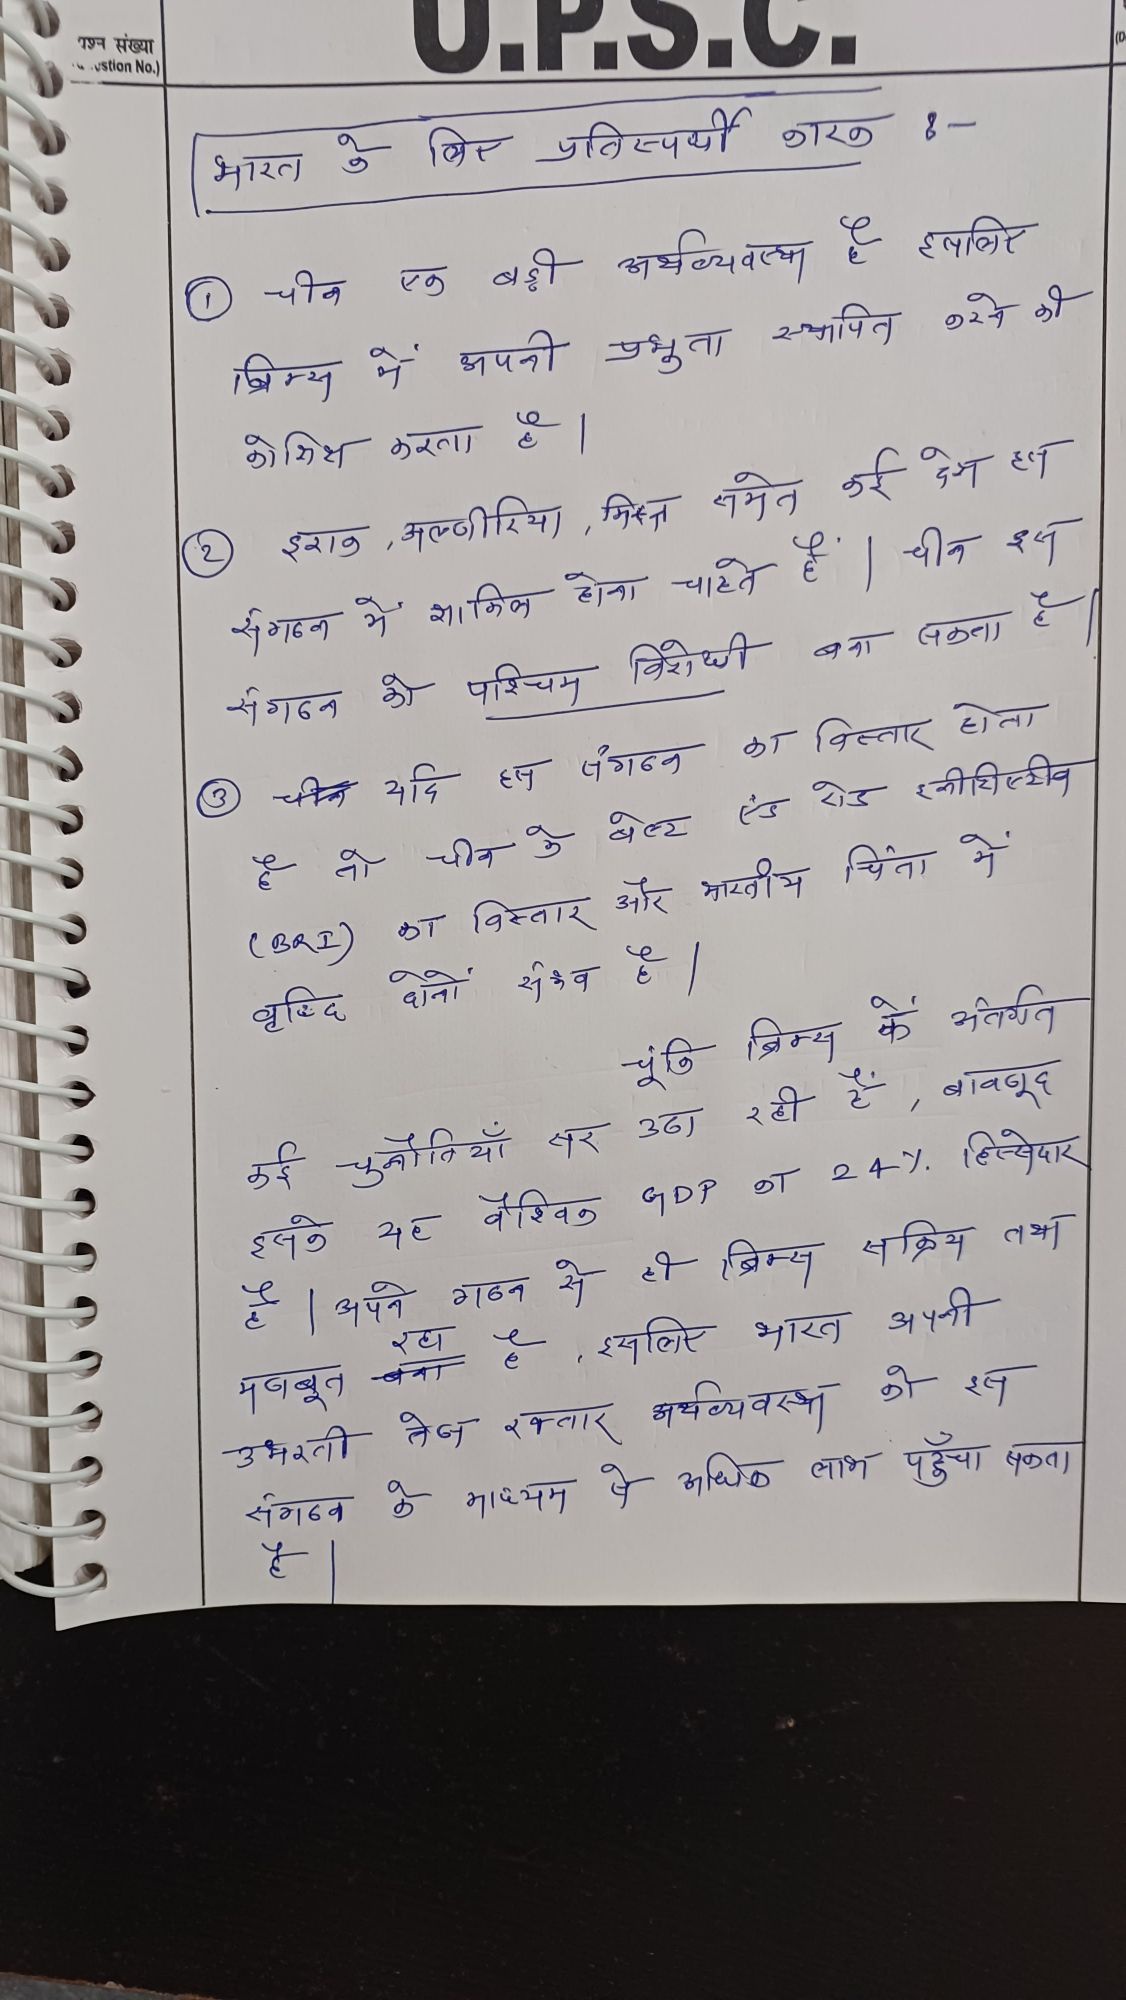 प्रश्न संख्या
U.P.S.C.
stion No.)
भारत के लिए प्रतिस्पर्धी कारक :-
① चीन एक बड़ी अर्थव्यवस्था है इसलिए
ब्रिक्स में अपनी प्रभुता स्थापित करने की
कोशिश करता है।
② इराक, अल्जीरिया, मिस्त्र समेत कई देश इस
संगठन में शामिल होना चाहते हैं। चीन इस
संगठन को पश्चिम विरोधी बना सकता है।
③ चीन यदि इस संगठन का विस्तार होता
है तो चीन के बेल्ट एंड रोड इनीशिएटीव
(BRI) का विस्तार और भारतीय चिंता में
वृद्धि दोनों संभव है।
चूंकि ब्रिक्स के अंतर्गत
कई चुनौतियाँ सर उठा रही हैं, बावजूद
इसके यह वैश्विक GDP का 24% हिस्सेदार
है। अपने गठन से ही ब्रिक्स सक्रिय तथा
मजबूत बना रहा है, इसलिए भारत अपनी
उभरती तेज रफ्तार अर्थव्यवस्था को इस
संगठन के माध्यम से अधिक लाभ पहुँचा सकता
है।